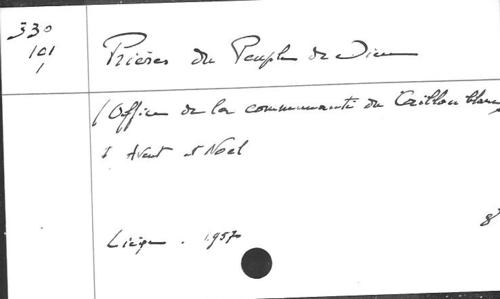 330
101
1
Prières du Peuple de Dieu
(Office de la communauté du Caillou blanc)
1 Avent et Noël
Liège . 1957
8°